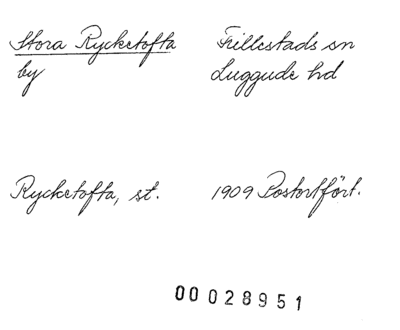 Stora Rycketofta Frillestads sn
by Luggude hd
Rycketofta, st. 1909 Postortfört.
00 028951